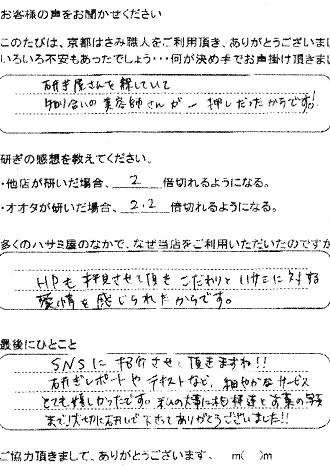 お客様の声をお聞かせください
このたびは、京都はさみ職人をご利用頂き、ありがとうございまし
いろいろ不安もあったでしょう・・・何が決め手でお声掛け頂きまし
研ぎ屋さんを探していて
知り合いの美容師さんが一押しだったからです!
研ぎの感想を教えてください。
・他店が研いだ場合、 2 倍切れるようになる。
・オオタが研いだ場合、 2.2 倍切れるようになる。
多くのハサミ屋のなかで、なぜ当店をご利用いただいたのですか
HPも拝見させて頂き こだわりとハサミに対する
愛情を感じられたからです。
最後にひとこと
SNSに紹介させて頂きますね!!
研ぎレポートやテキストなど、細やかなサービス
とても嬉しかったです。私の大事に相棒達と言葉の
まで大切に して下さってありがとうございました!!
ご協力頂きまして、ありがとうございます。 m( )m